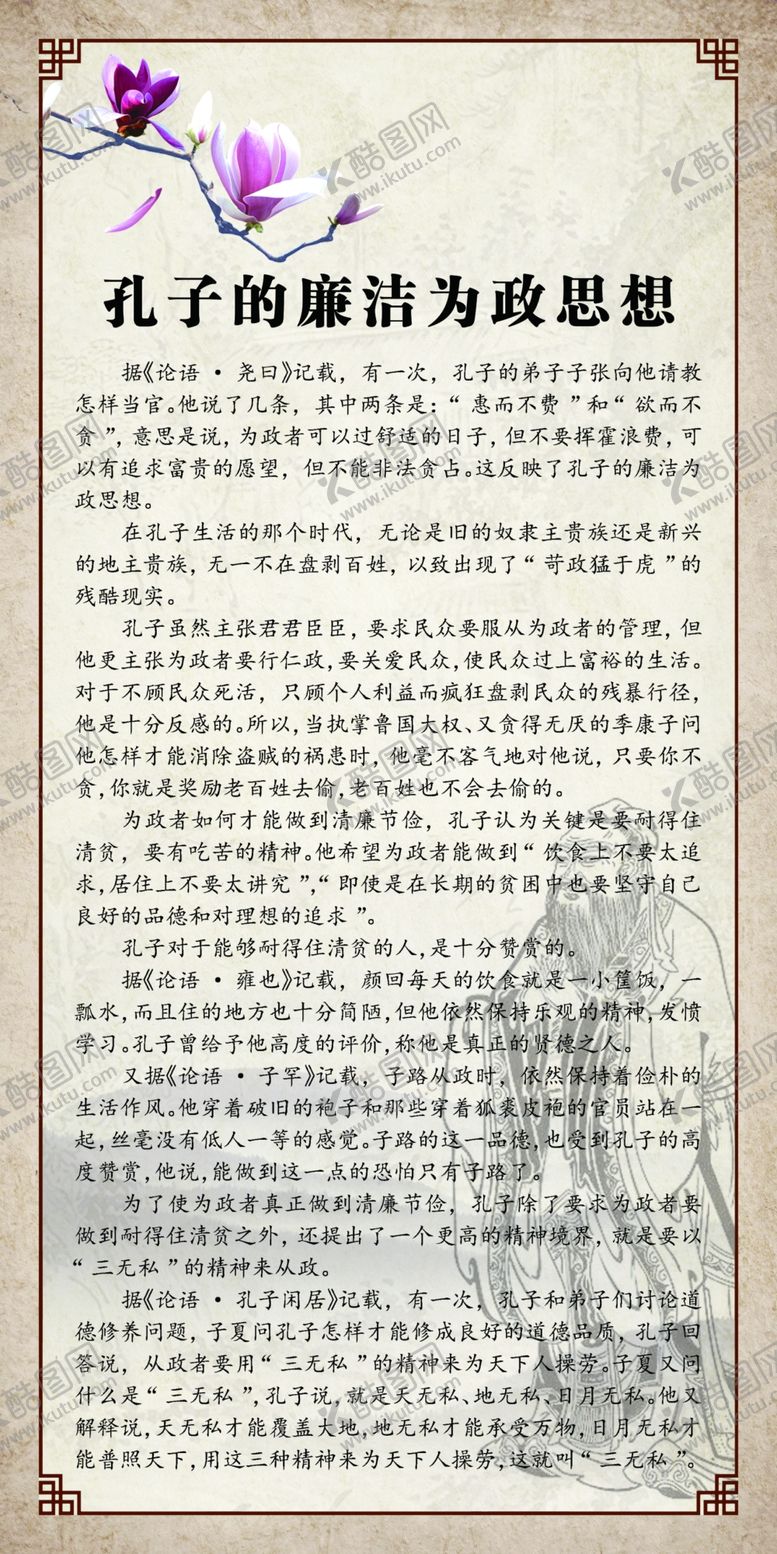 孔子的廉洁为政思想
据《论语 · 尧曰》记载，有一次，孔子的弟子子张向他请教
怎样当官。他说了几条，其中两条是：“惠而不费”和“欲而不
贪”，意思是说，为政者可以过舒适的日子，但不要挥霍浪费，可
以有追求富贵的愿望，但不能非法贪占。这反映了孔子的廉洁为
政思想。
在孔子生活的那个时代，无论是旧的奴隶主贵族还是新兴
的地主贵族，无一不在盘剥百姓，以致出现了“苛政猛于虎”的
残酷现实。
孔子虽然主张君君臣臣，要求民众要服从为政者的管理，但
他更主张为政者要行仁政，要关爱民众，使民众过上富裕的生活。
对于不顾民众死活，只顾个人利益而疯狂盘剥民众的残暴行径，
他是十分反感的。所以，当执掌鲁国大权、又贪得无厌的季康子问
他怎样才能消除盗贼的祸患时，他毫不客气地对他说，只要你不
贪，你就是奖励老百姓去偷，老百姓也不会去偷的。
为政者如何才能做到清廉节俭，孔子认为关键是要耐得住
清贫，要有吃苦的精神。他希望为政者能做到“饮食上不要太追
求，居住上不要太讲究”，“即使是在长期的贫困中也要坚守自己
良好的品德和对理想的追求”。
孔子对于能够耐得住清贫的人，是十分赞赏的。
据《论语 · 雍也》记载，颜回每天的饮食就是一小筐饭，一
瓢水，而且住的地方也十分简陋，但他依然保持乐观的精神，发愤
学习。孔子曾给予他高度的评价，称他是真正的贤德之人。
又据《论语 · 子罕》记载，子路从政时，依然保持着俭朴的
生活作风。他穿着破旧的袍子和那些穿着狐裘皮袍的官员站在一
起，丝毫没有低人一等的感觉。子路的这一品德，也受到孔子的高
度赞赏，他说，能做到这一点的恐怕只有子路了。
为了使为政者真正做到清廉节俭，孔子除了要求为政者要
做到耐得住清贫之外，还提出了一个更高的精神境界，就是要以
“三无私”的精神来从政。
据《论语 · 孔子闲居》记载，有一次，孔子和弟子们讨论道
德修养问题，子夏问孔子怎样才能修成良好的道德品质，孔子回
答说，从政者要用“三无私”的精神来为天下人操劳。子夏又问
什么是“三无私”，孔子说，就是天无私、地无私、日月无私。他又
解释说，天无私才能覆盖大地，地无私才能承受万物，日月无私才
能普照天下，用这三种精神来为天下人操劳，这就叫“三无私”。
酷图网
www.ikutu.com